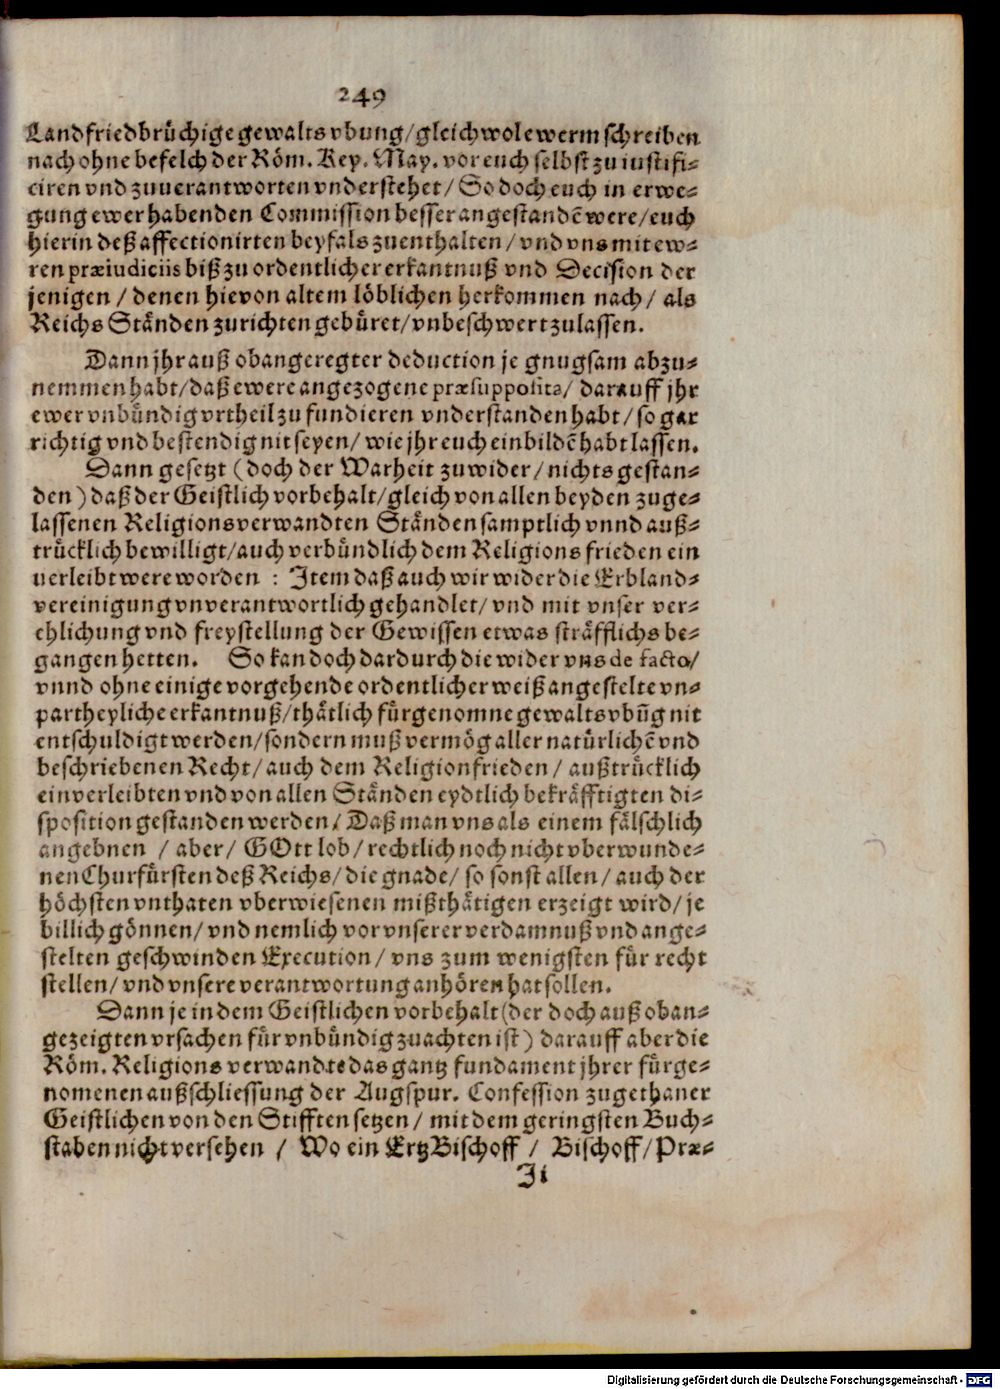 249
Landfriedbrüchige gewaltsvbung/gleichwol ewerm schreiben
nach ohne befelch der Röm. Key. May. vor euch selbst zu iustifi-
ciren vnd zuuerantworten vnderstehet/ So doch euch in erwe-
gung ewer habenden Commission besser angestandē were/euch
hierin deß affectionirten beyfals zuenthalten/vnd vns mit ew-
ren præiudiciis biß zu ordentlicher erkantnuß vnd Decision der
jenigen / denen hievon altem löblichen herkommen nach/ als
Reichs Ständen zurichten gebüret/vnbeschwert zulassen.
Dann jhr auß obangeregter deduction je gnugsam abzu-
nemmen habt/daß ewere angezogene præsupposita/ darauff jhr
ewer vnbündig vrtheil zu fundieren vnderstanden habt/so gar
richtig vnd bestendig nit seyen/wie jhr euch einbildē habt lassen.
Dann gesetzt (doch der Warheit zu wider/nichts gestan-
den) daß der Geistlich vorbehalt/gleich von allen beyden zuge-
lassenen Religionsverwandten Ständen samptlich vnnd auß-
trücklich bewilligt/auch verbündlich dem Religions frieden ein
verleibt were worden : Item daß auch wir wider die Erbland-
vereinigung vnverantwortlich gehandlet/ vnd mit vnser ver-
ehlichung vnd freystellung der Gewissen etwas sträfflichs be-
gangen hetten. So kan doch dardurch die wider vns de facto/
vnnd ohne einige vorgehende ordentlicher weiß angestelte vn-
partheyliche erkantnuß/thätlich fürgenomne gewaltsvbūg nit
entschuldigt werden/sondern muß vermög aller natürlichē vnd
beschriebenen Recht/auch dem Religionfrieden/ außtrücklich
einverleibten vnd von allen Ständen eydtlich bekräfftigten di-
sposition gestanden werden/ Daß man vns als einem fälschlich
angebnen / aber/ GOtt lob/rechtlich noch nicht vberwunde-
nen Churfürsten deß Reichs/die gnade/ so sonst allen/ auch der
höchsten vnthaten vberwiesenen mißthätigen erzeigt wird/je
billich gönnen/ vnd nemlich vor vnserer verdamnuß vnd ange-
stelten geschwinden Execution/ vns zum wenigsten für recht
stellen/ vnd vnsere verantwortung anhören hat sollen.
Dann je in dem Geistlichen vorbehalt (der doch auß oban-
gezeigten vrsachen für vnbündig zuachten ist) darauff aber die
Röm. Religions verwandte das gantz fundament jhrer fürge-
nomenen außschliessung der Augspur. Confession zugethaner
Geistlichen von den Stifften setzen/ mit dem geringsten Buch-
staben nicht versehen / Wo ein ErtzBischoff / Bischoff/Præ-
Ii
Digitalisierung gefördert durch die Deutsche Forschungsgemeinschaft - DFG